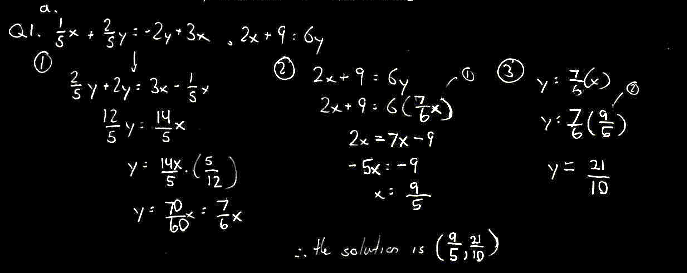 a.
Q1. 1/5 x + 2/5 y = -2y + 3x , 2x + 9 = 6y
①
2/5 y + 2y = 3x - 1/5 x
12/5 y = 14/5 x
y = 14x/5 · (5/12)
y = 70/60 x = 7/6 x
② 2x + 9 = 6y
2x + 9 = 6(7/6 x) ①
2x = 7x - 9
-5x = -9
x = 9/5
③ y = 7/6 (x)
y = 7/6 (9/5) ②
y = 21/10
∴ the solution is (9/5, 21/10)